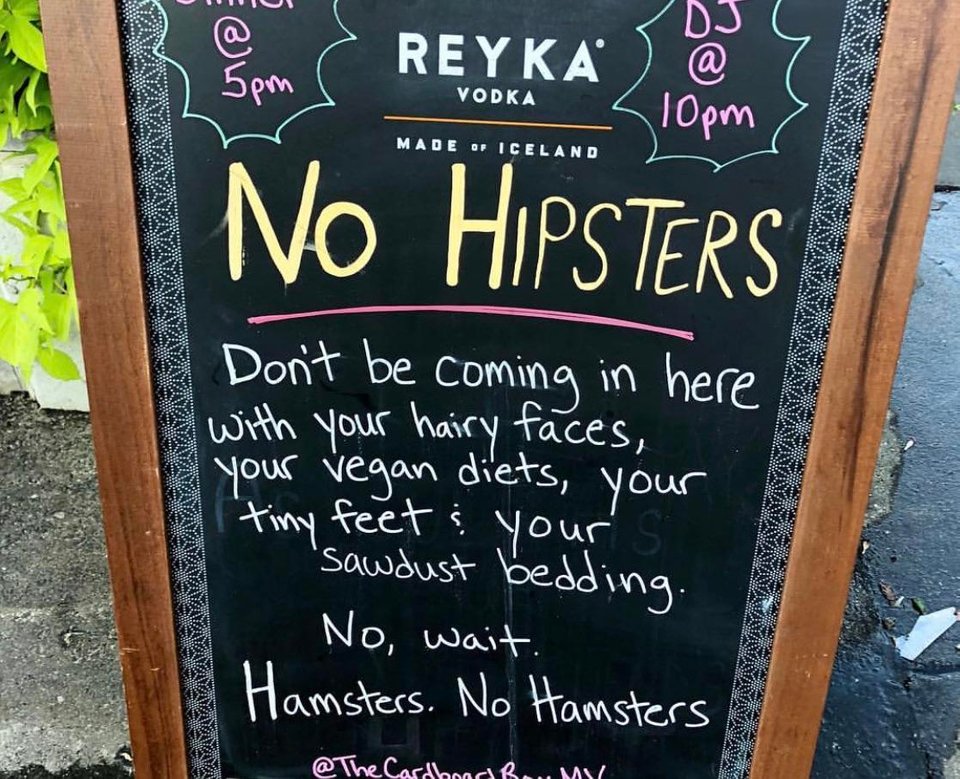 Dinner
@
5pm
REYKA
VODKA
MADE OF ICELAND
DJ
@
10pm
No HIPSTERS
Don't be coming in here
with your hairy faces,
your vegan diets, your
tiny feet & your
sawdust bedding.
No, wait.
Hamsters. No Hamsters
@TheCardboardBox MV